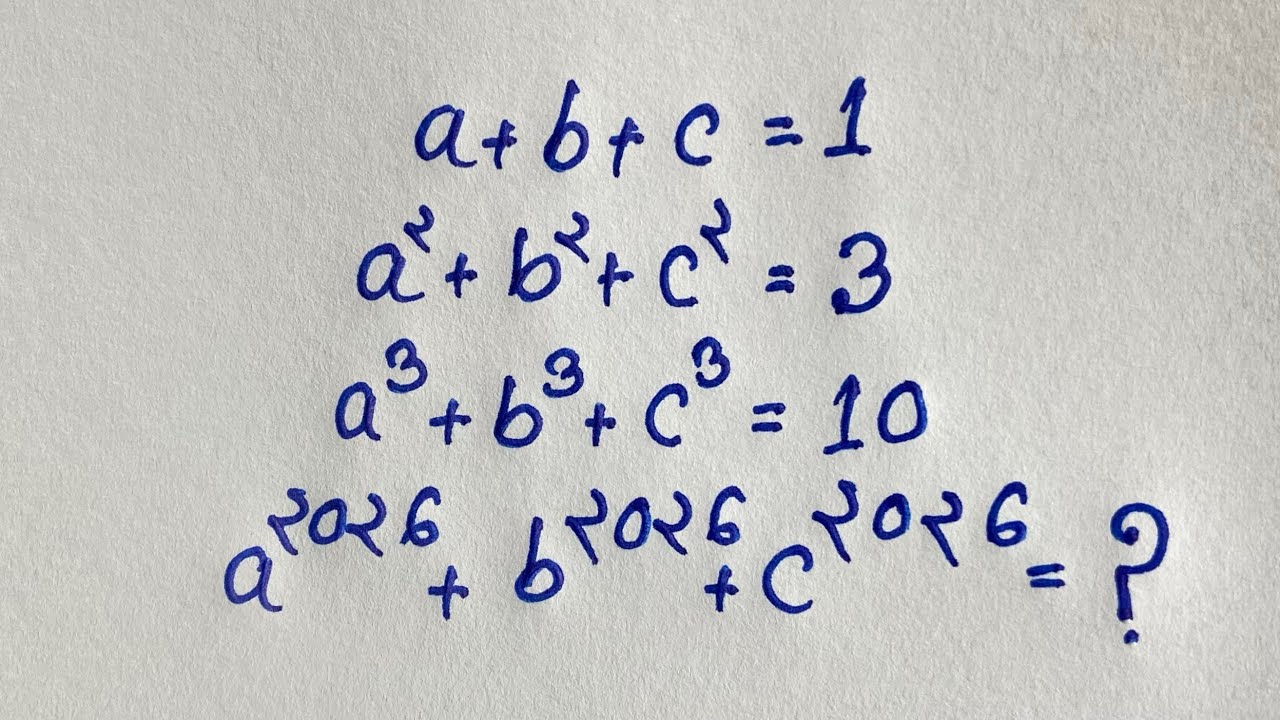 a + b + c = 1
a² + b² + c² = 3
a³ + b³ + c³ = 10
a²⁰²⁶ + b²⁰²⁶ + c²⁰²⁶ = ?